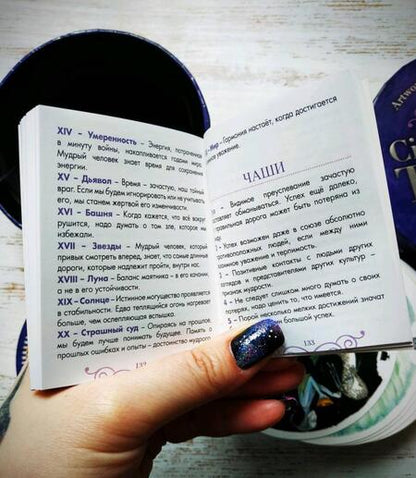 XIV – Умеренность – Энергия, потраченная
в минуту войны, накапливается годами мира.
Мудрый человек знает время для сохранения
энергии.
XV – Дьявол – Время – зачастую, наш тайный
враг. Если мы будем игнорировать или не учитывать
его, мы станем жертвой его изменчивости.
XVI – Башня – Когда кажется, что всё вокруг
рушится, надо думать о том зле, которое мы
избежали.
XVII – Звезды – Мудрый человек, который
привык смотреть вперед, знает, что самые длинные
дороги, которые надлежит пройти, внутри нас.
XVIII – Луна – Баланс маятника – в его качании,
а не в его устойчивости.
XIX – Солнце – Истинное могущество проявляется
в стабильности. Едва теплящийся огонь нагревает
больше, чем ослепляющая вспышка.
XX – Страшный суд – Опираясь на прошлое,
мы будем лучше понимать будущее. Память о
прошлых ошибках и опыте – достоинство мудрого
132
– Мир – Гармония настаёт, когда достигается
уважение.
ЧАШИ
– Видимое преуспевание зачастую
обманываться. Успех ещё далеко,
дорога может быть потеряна из
виду.
– Успех возможен даже в союзе абсолютно
людей, если между ними
уважение и терпимость.
– Позитивные контакты с людьми других
взглядов и представителями других культур –
признак мудрости.
4 – Не следует слишком много думать о своих
потерях, надо ценить то, что имеется.
5 – Порой несколько мелких достижений значат
большой успех.
133
Artwo